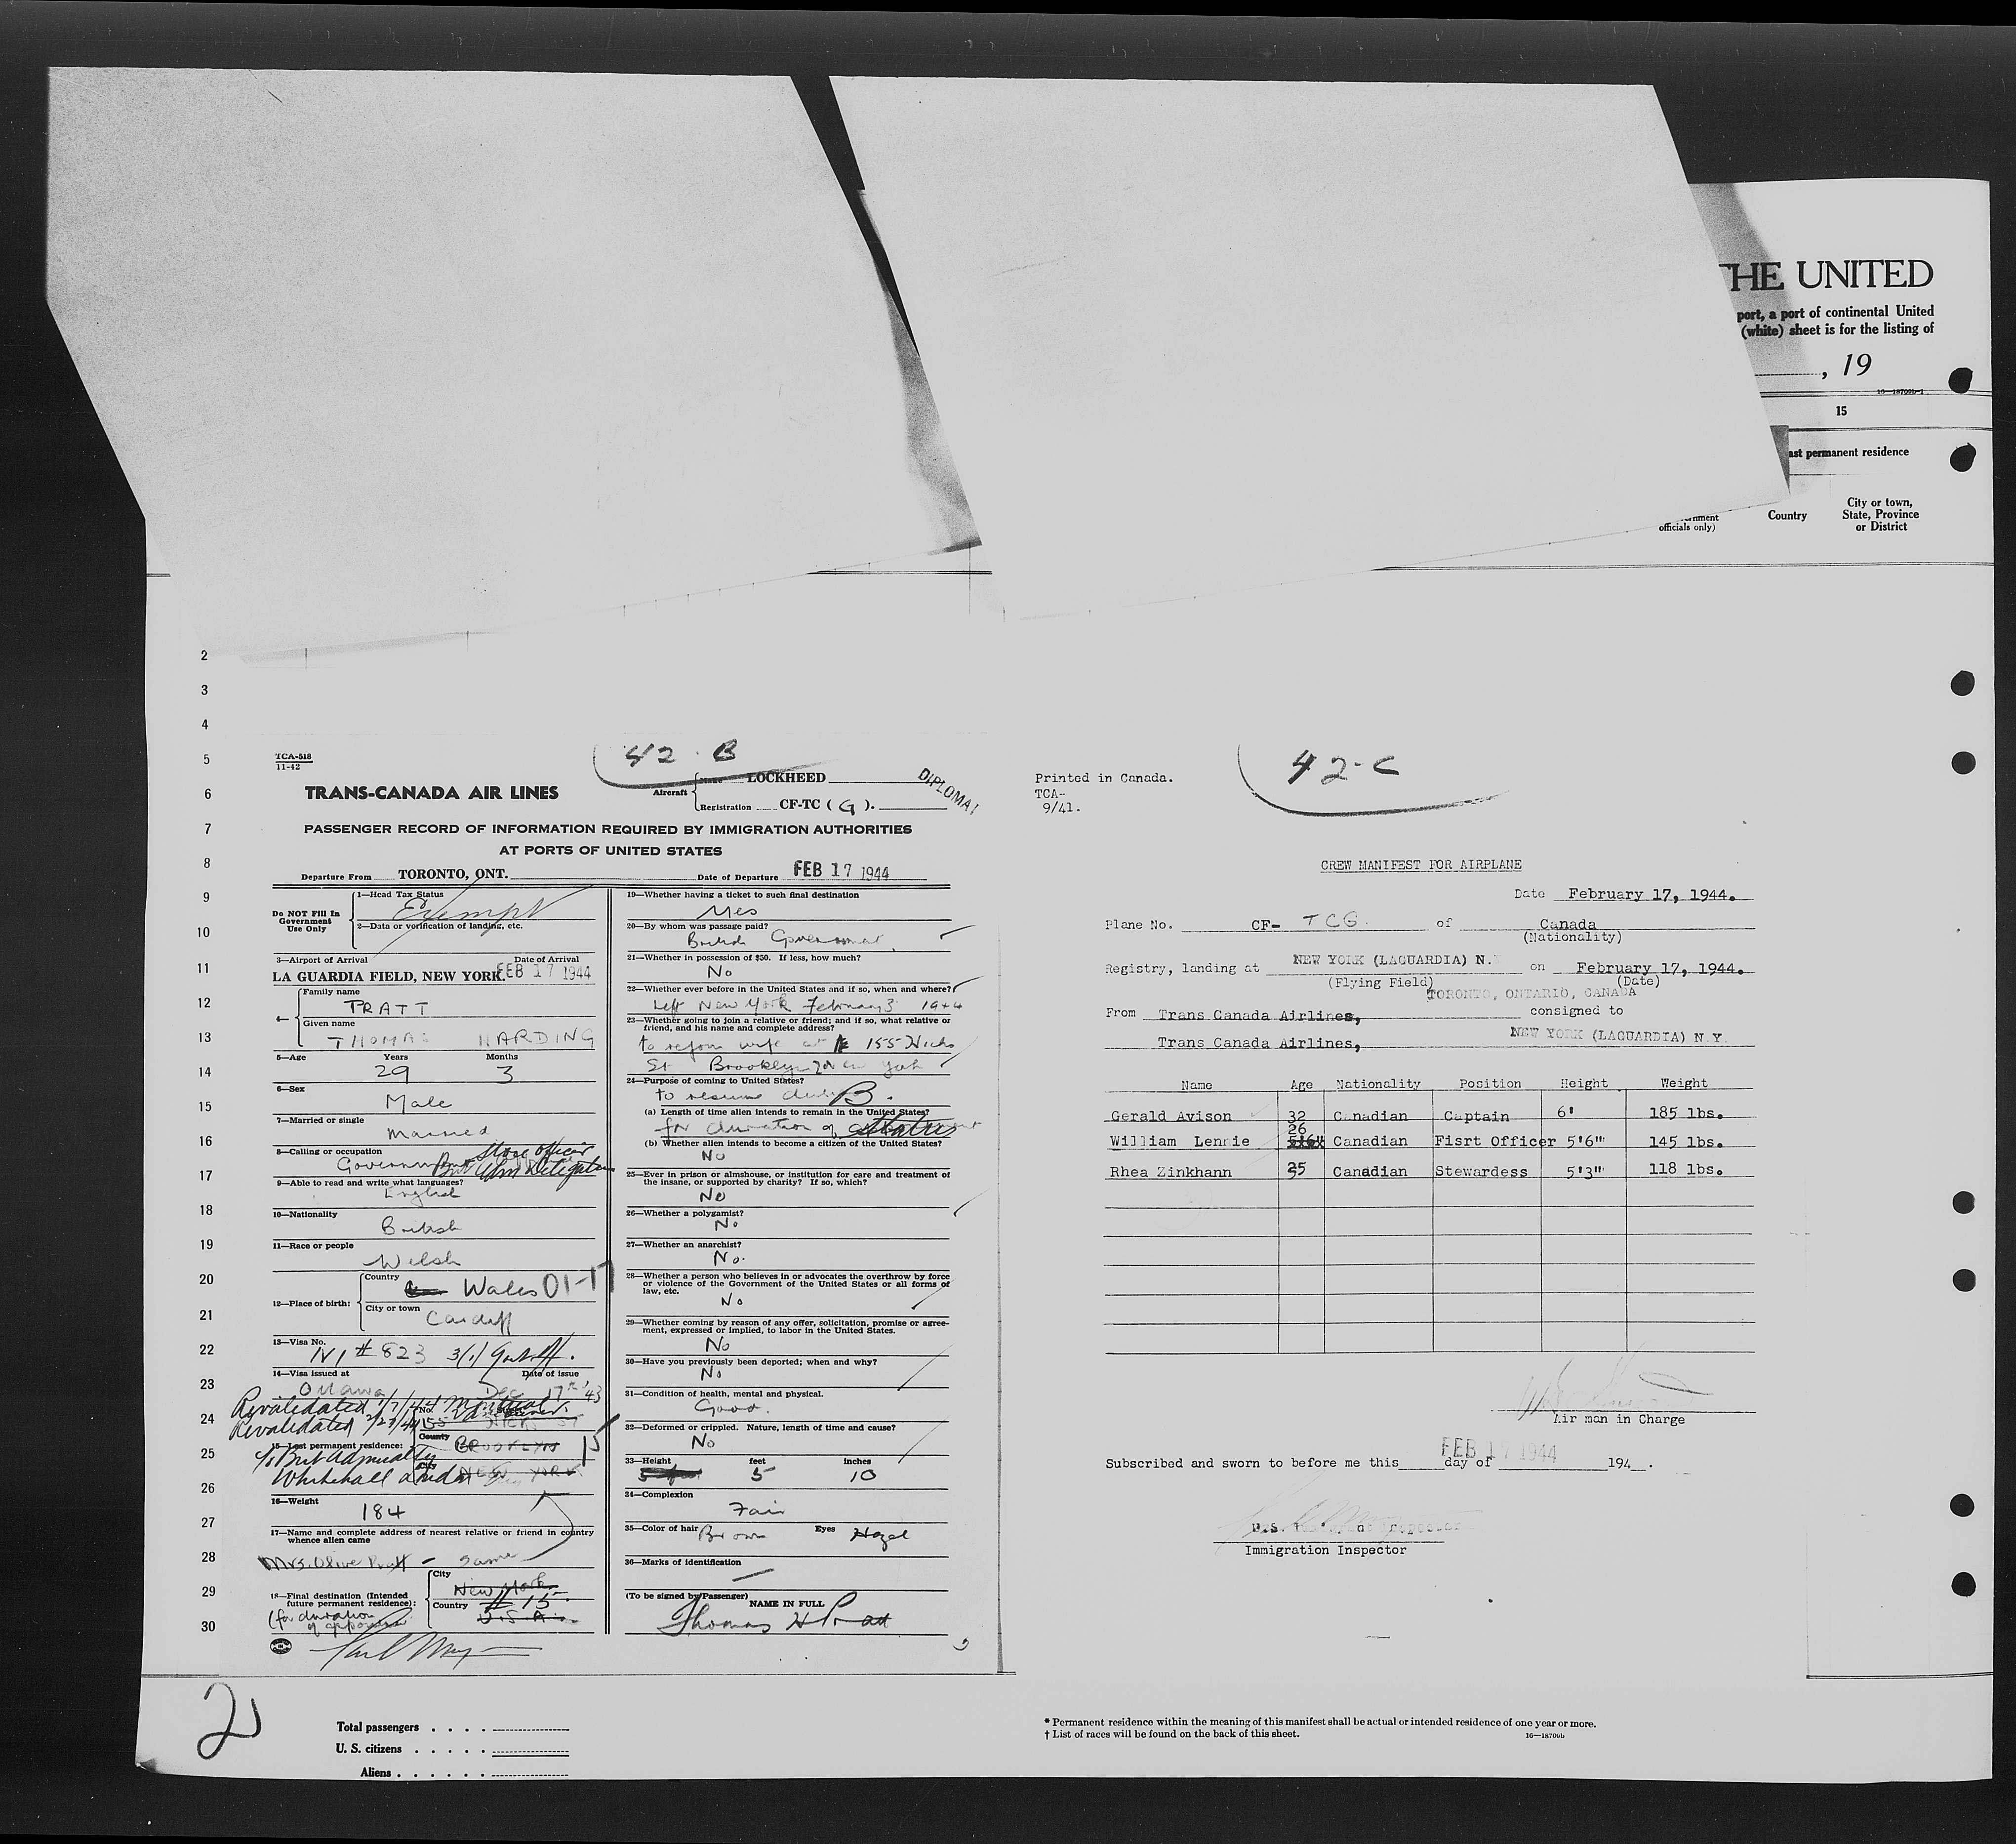 THE UNITED
port, a port of continental United
(white) sheet is for the listing of
, 19
16—18700b-1
15
ast permanent residence
officials only)
Country
City or town,
State, Province
or District
2
3
4
5
6
7
8
9
10
11
12
13
14
15
16
17
18
19
20
21
22
23
24
25
26
27
28
29
30
42-B
TCA-518
11-42
TRANS-CANADA AIR LINES
Aircraft
Name LOCKHEED
Registration CF-TC ( G ).
DIPLOMAT
PASSENGER RECORD OF INFORMATION REQUIRED BY IMMIGRATION AUTHORITIES
AT PORTS OF UNITED STATES
Departure From TORONTO, ONT. Date of Departure FEB 17 1944
Do NOT Fill In
Government
Use Only
1—Head Tax Status
Exempt
2—Data or verification of landing, etc.
3—Airport of Arrival Date of Arrival
LA GUARDIA FIELD, NEW YORK. FEB 17 1944
4—
Family name
PRATT
Given name
THOMAS HARDING
5—Age Years Months
29 3
6—Sex
Male
7—Married or single
Married
8—Calling or occupation
Store officer
9—Able to read and write what languages?
English
10—Nationality
British
11—Race or people
Welsh
12—Place of birth:
Country
Wales 01-17
City or town
Cardiff
13—Visa No.
# 823 3(1)
14—Visa issued at Date of issue
Ottawa Dec 17th '43
Revalidated 1/7/44 Montreal
Revalidated
15—Last permanent residence:
No.
155
County
BROOKLYN
City
NEW YORK
15
c/o Brit Admiralty
Whitehall London
16—Weight
184
17—Name and complete address of nearest relative or friend in country
whence alien came
Mrs. Olive Pratt - same
18—Final destination (Intended
future permanent residence):
(for duration
City
New York
# 15
Country
U.S.A.
19—Whether having a ticket to such final destination
Yes
20—By whom was passage paid?
British Government
21—Whether in possession of $50. If less, how much?
No
22—Whether ever before in the United States and if so, when and where?
Left New York February 3 1944
23—Whether going to join a relative or friend; and if so, what relative or
friend, and his name and complete address?
to rejoin wife at 155 Hicks
St. Brooklyn New York
24—Purpose of coming to United States?
to resume duty B.
(a) Length of time alien intends to remain in the United States?
for duration of status
(b) Whether alien intends to become a citizen of the United States?
No
25—Ever in prison or almshouse, or institution for care and treatment of
the insane, or supported by charity? If so, which?
No
26—Whether a polygamist?
No
27—Whether an anarchist?
No.
28—Whether a person who believes in or advocates the overthrow by force
or violence of the Government of the United States or all forms of
law, etc.
No
29—Whether coming by reason of any offer, solicitation, promise or agree-
ment, expressed or implied, to labor in the United States.
No
30—Have you previously been deported; when and why?
No
31—Condition of health, mental and physical.
Good.
32—Deformed or crippled. Nature, length of time and cause?
No
33—Height feet inches
5 10
34—Complexion
Fair
35—Color of hair Brown Eyes Hazel
36—Marks of identification
—
(To be signed by Passenger)
NAME IN FULL
Thomas H Pratt
2
Total passengers
U. S. citizens
Aliens
42-C
Printed in Canada.
TCA-
9/41.
CREW MANIFEST FOR AIRPLANE
Date February 17, 1944.
Plane No. CF- TCG. of Canada
(Nationality)
Registry, landing at NEW YORK (LAGUARDIA) N.Y. on February 17, 1944.
(Flying Field) (Date)
TORONTO, ONTARIO, CANADA
From Trans Canada Airlines, consigned to
Trans Canada Airlines, NEW YORK (LAGUARDIA) N.Y.
Name Age Nationality Position Height Weight
Gerald Avison 32 Canadian Captain 6' 185 lbs.
26
William Lennie 5'6" Canadian Fisrt Officer 5'6" 145 lbs.
Rhea Zinkhann 25 Canadian Stewardess 5'3" 118 lbs.
Air man in Charge
Subscribed and sworn to before me this day of FEB 17 1944 194 .
Immigration Inspector
* Permanent residence within the meaning of this manifest shall be actual or intended residence of one year or more.
† List of races will be found on the back of this sheet.
16—18700b